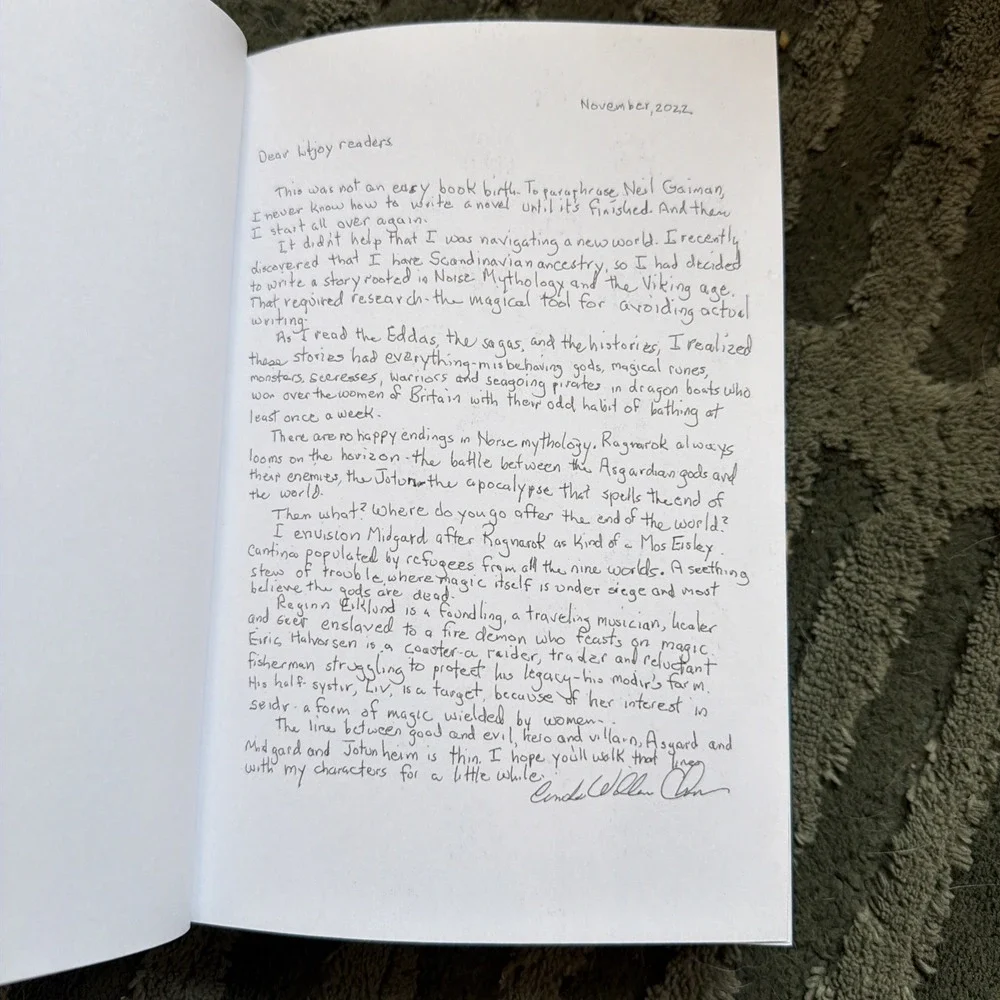 November, 2022
Dear Litjoy readers
This was not an easy book birth. To paraphrase Neil Gaiman,
I never know how to write a novel until it's finished. And then
I start all over again.
It didn't help that I was navigating a new world. I recently
discovered that I have Scandinavian ancestry, so I had decided
to write a story rooted in Norse Mythology and the Viking age.
That required research-the magical tool for avoiding actual
writing.
As I read the Eddas, the sagas, and the histories, I realized
these stories had everything-misbehaving gods, magical runes,
monsters, seeresses, warriors and seagoing pirates in dragon boats who
won over the women of Britain with their odd habit of bathing at
least once a week.
There are no happy endings in Norse mythology. Ragnarok always
looms on the horizon-the battle between the Asgardian gods and
their enemies, the Jotun-the apocalypse that spells the end of
the world.
Then what? Where do you go after the end of the world?
I envision Midgard after Ragnarok as kind of a Mos Eisley
Cantina populated by refugees from all the nine worlds. A seething
stew of trouble, where magic itself is under siege and most
believe the gods are dead.
Reginn Eiklund is a foundling, a traveling musician, healer
and seer enslaved to a fire demon who feasts on magic.
Eiric Halvorsen is a coaster-a raider, trader and reluctant
fisherman struggling to protect his legacy-his modir's farm.
His half-systir, Liv, is a target, because of her interest in
seidr-a form of magic wielded by women.
The line between good and evil, hero and villain, Asgard and
Midgard and Jotunheim is thin. I hope you'll walk that line
with my characters for a little while.